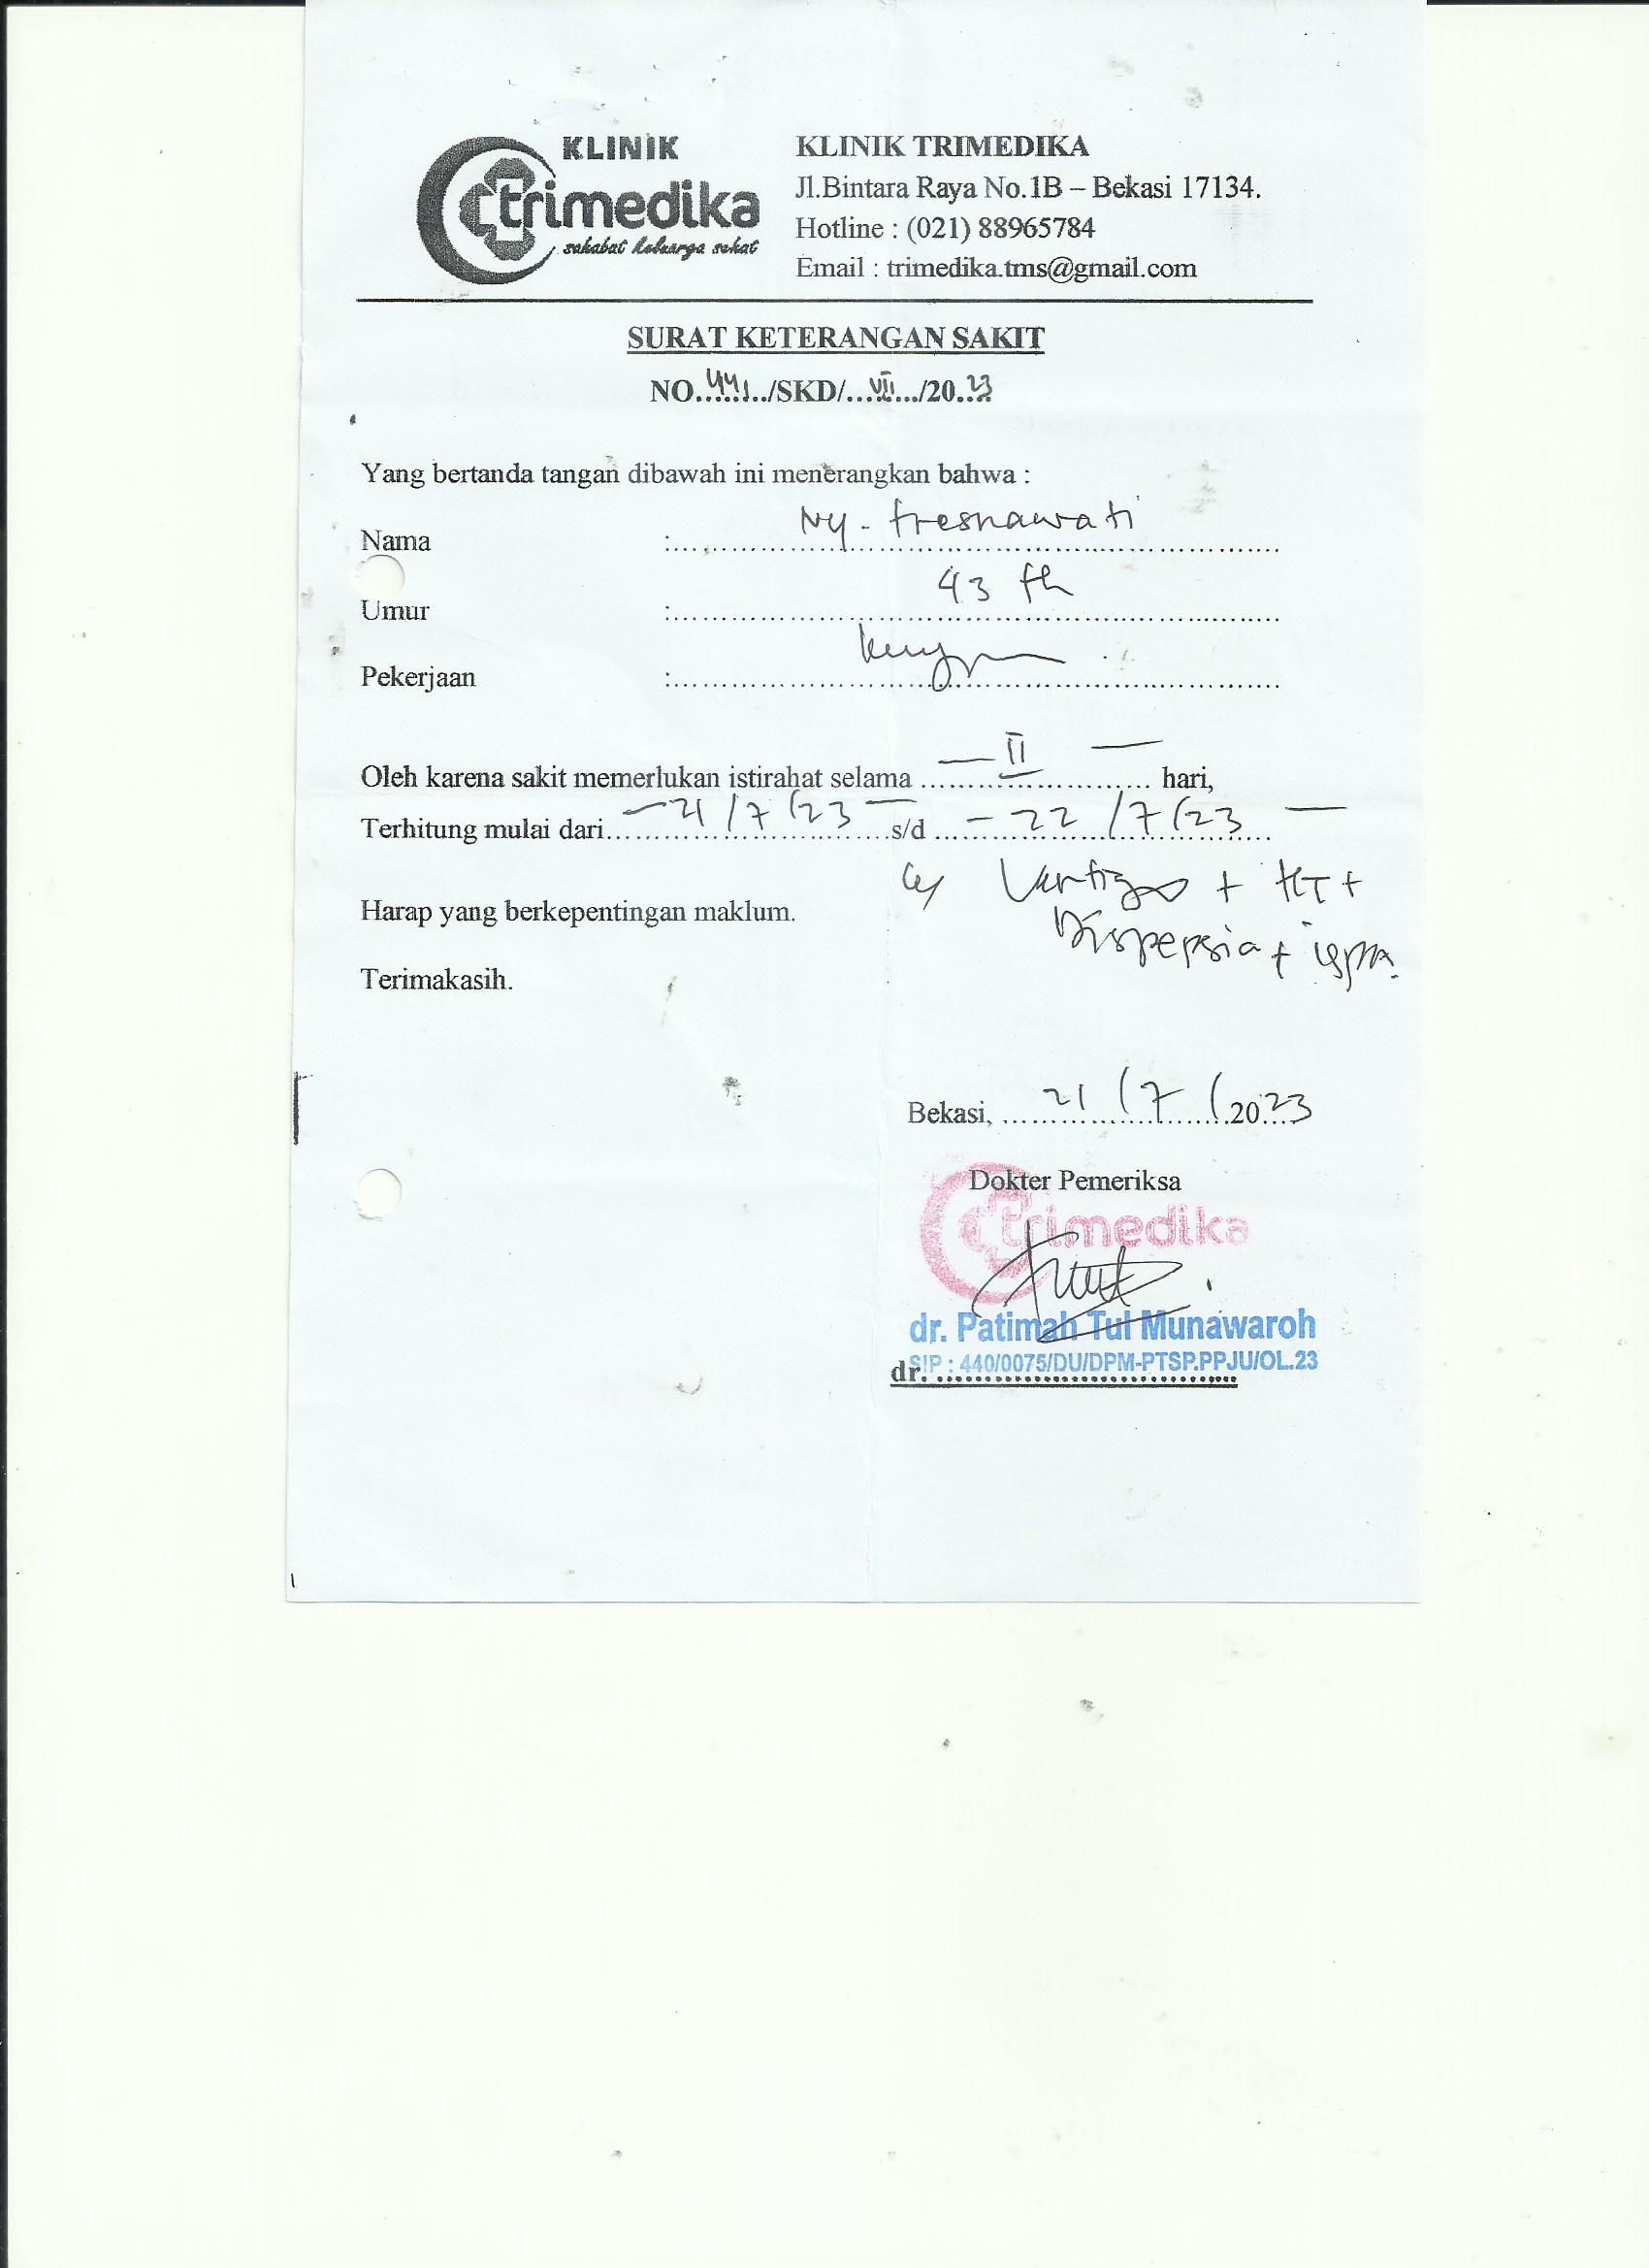 KLINIK
trimedika
sahabat keluarga sehat
KLINIK TRIMEDIKA
Jl.Bintara Raya No.1B – Bekasi 17134.
Hotline : (021) 88965784
Email : trimedika.tms@gmail.com
SURAT KETERANGAN SAKIT
NO.441../SKD/...VII.../20.23
Yang bertanda tangan dibawah ini menerangkan bahwa :
Nama : Ny. Fresnawati
Umur : 43 th
Pekerjaan :
Oleh karena sakit memerlukan istirahat selama — II — hari,
Terhitung mulai dari — 21/7/23 — s/d — 22/7/23 —
Vertigo + HT +
Harap yang berkepentingan maklum.
Dispepsia + ispa.
Terimakasih.
Bekasi, 21/7/2023
Dokter Pemeriksa
trimedika
dr. Patimah Tul Munawaroh
SIP : 440/0075/DU/DPM-PTSP.PPJU/OL.23
dr. ..............................